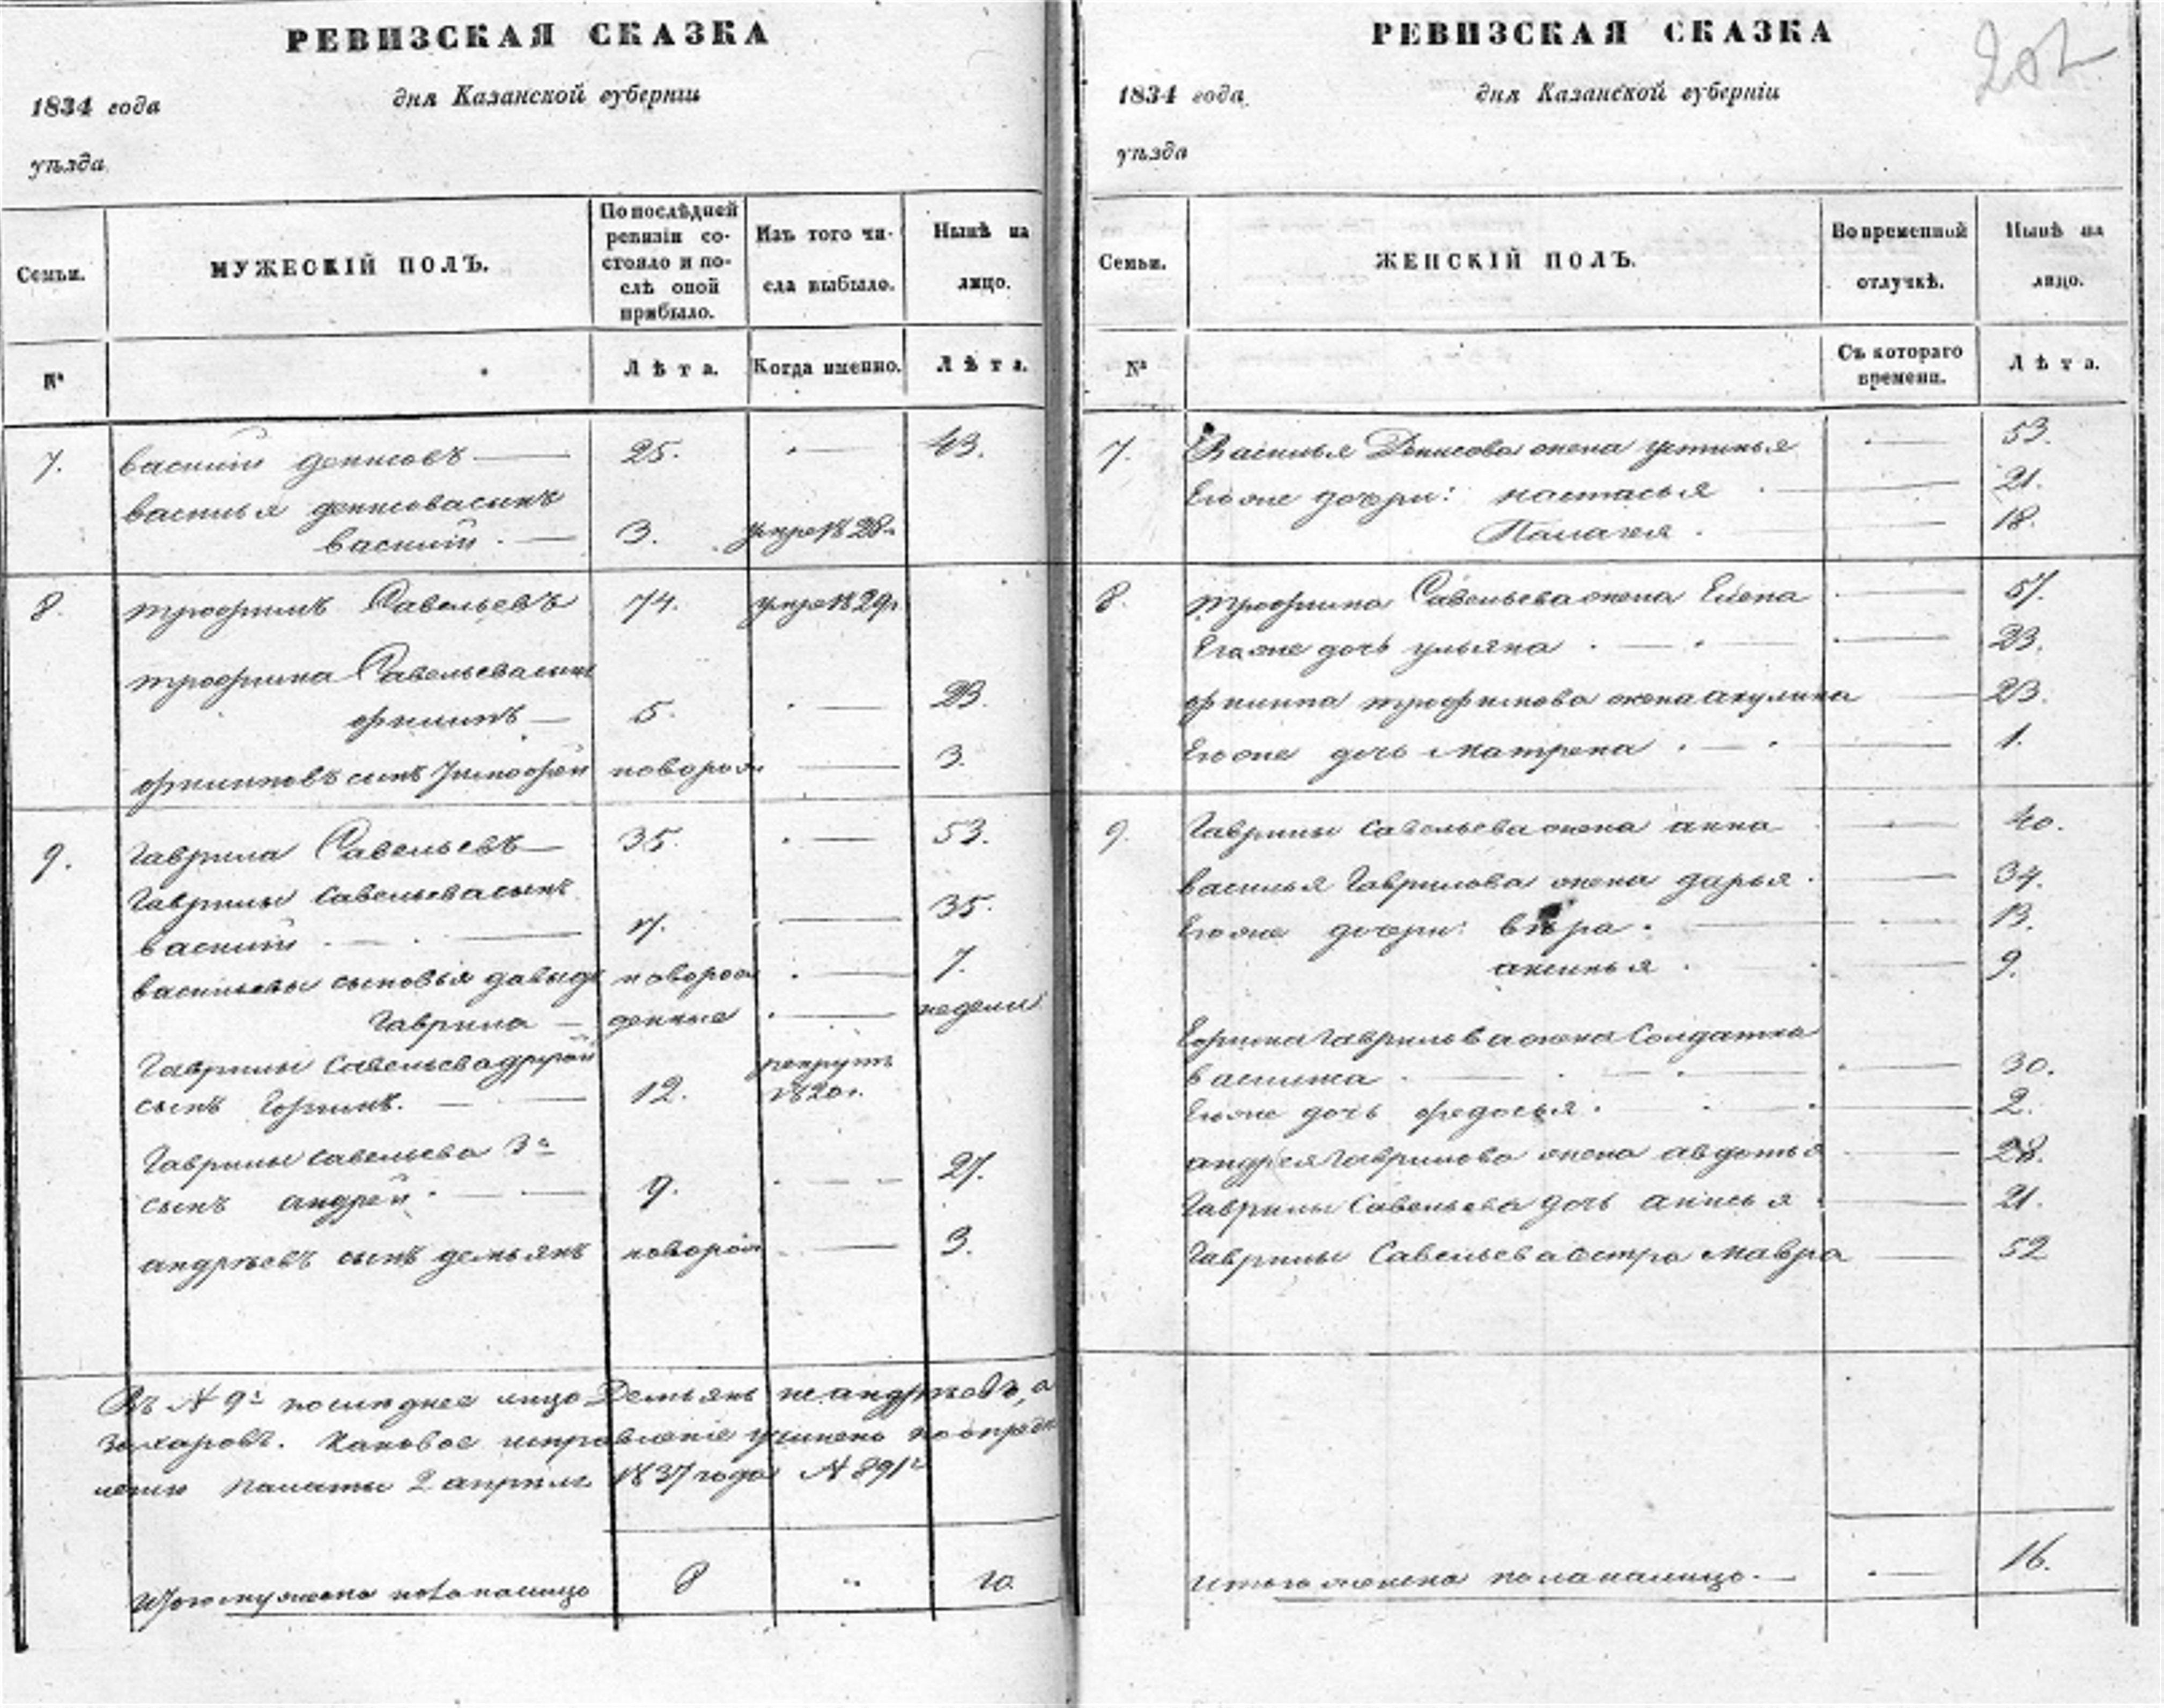 РЕВИЗСКАЯ СКАЗКА
1834 года
дня Казанской губерніи
уѣзда
Семьи.
МУЖЕСКІЙ ПОЛЪ.
По послѣдней
ревизіи со-
стояло и по-
слѣ оной
прибыло.
Изъ того чи-
сла выбыло.
Нынѣ на
лицо.
№
Лѣта.
Когда именно.
Лѣта.
7. василій денисовъ 25. 43.
василья денисова сынъ
василій 3. умре 1828г.
8. трофимъ Савельевъ 74. умре 1829г.
трофима Савельева сынъ
филипъ 5. 23.
филиповъ сынъ Тимофей новорож 3.
9. Гаврила Савельевъ 35. 53.
Гаврилы Савельева сынъ
василій 17. 35.
васильевы сыновья давыдъ новорож 7.
Гаврила денные недели
Гаврилы Савельева другой рекрутъ
сынъ Ефимъ. 12. 1820г.
Гаврилы савельева 3й
сынъ андрей 9. 27.
андрѣевъ сынъ демьянъ новорож 3.
Въ № 9й последнее лицо Демьянъ не андрѣевъ, а
Захаровъ. Каковое исправленіе учинено по опреде
ленію палаты 2 апрѣля 1837 года № 891й
Итого мужеска пола налицо 8 " 10.
РЕВИЗСКАЯ СКАЗКА
202
1834 года
дня Казанской губерніи
уѣзда
Семьи.
ЖЕНСКІЙ ПОЛЪ.
Во временной
отлучкѣ.
Нынѣ на
лицо.
№
Съ котораго
времени.
Лѣта.
7. Василья Денисова жена устинья 53.
Его же дочери: настасья 21.
Палагея 18.
8. трофима Савельева жена Елена 57.
Его же дочь ульяна 23.
филипа трофимова жена акулина 23.
Его же дочь матрена 1.
9. Гаврилы савельева жена анна 40.
василья Гаврилова жена дарья 34.
Его же дочери: вѣра 13.
аксинья 9.
Ефима Гаврилова жена Солдатка
василиса 30.
Его же дочь федосья 2.
андрея Гаврилова жена авдотья 28.
Гаврилы Савельева дочь анисья 21.
Гаврилы Савельева сестра мавра 52
итого женска пола налицо. 16.